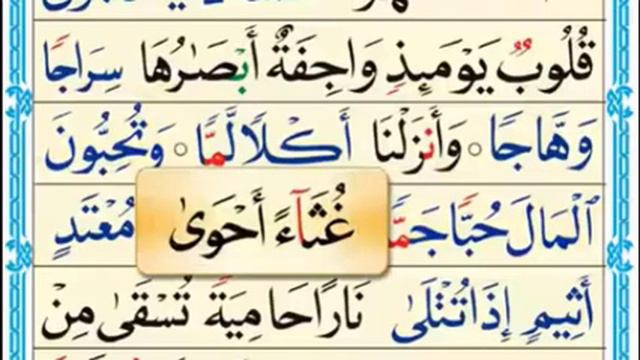 قُلُوبٌ يَوْمَئِذٍ وَاجِفَةٌ أَبْصَٰرُهَا سِرَاجًا
وَهَّاجًا وَأَنزَلْنَا أَكْلًا لَّمًّا وَتُحِبُّونَ
ٱلْمَالَ حُبًّا جَمًّا غُثَآءً أَحْوَىٰ مُعْتَدٍ
أَثِيمٍ إِذَا تُتْلَىٰ نَارًا حَامِيَةً تُسْقَىٰ مِنْ